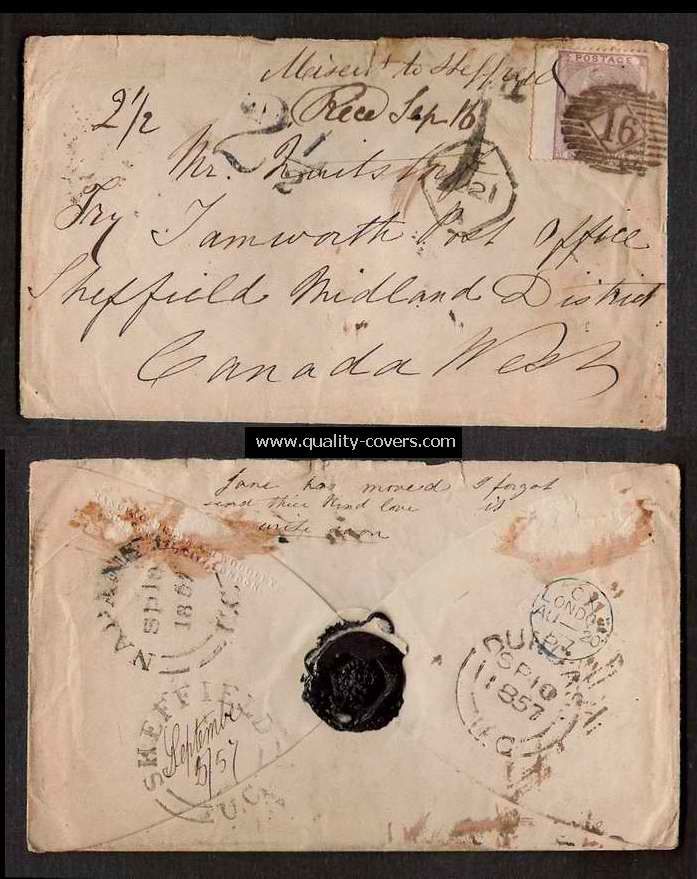 to Sheffield
Rec'd Sep 16
2 1/2
2 1/2
POSTAGE
16
21
Mr.
Try Tamworth Post Office
Sheffield Midland District
Canada West
www.quality-covers.com
Jane has moved I forgot
send their kind love
write soon
LONDON
AU 20
57
SP 10
1857
U.C.
SP 10
1857
U.C.
SHEFFIELD
September
/57
U.C.